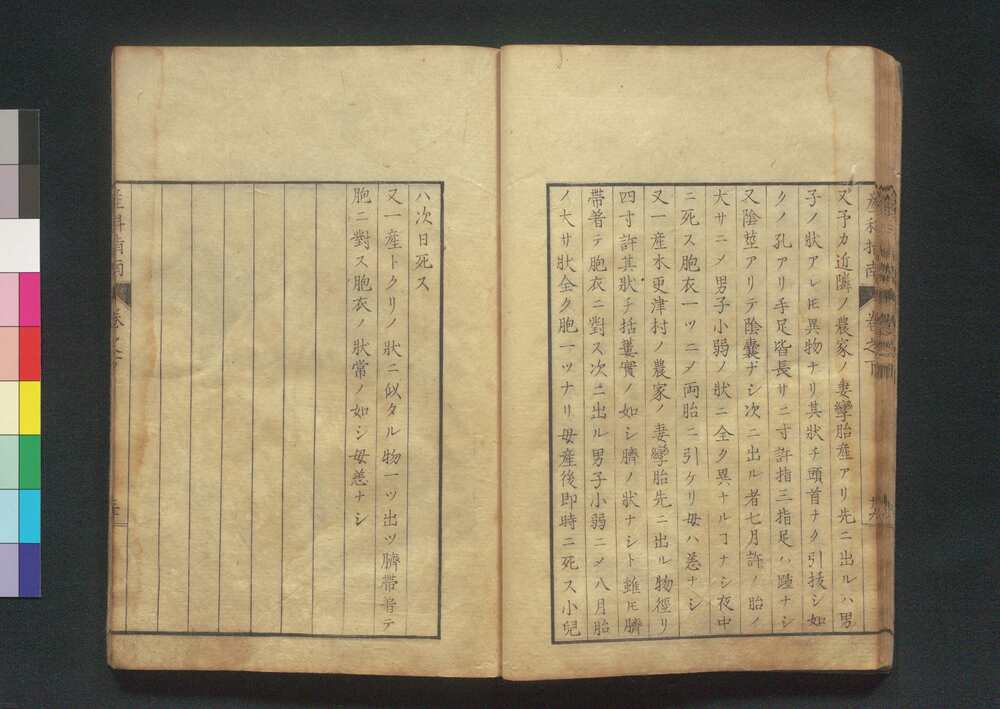 産科指南 巻之下
又予カ近隣ノ農家ノ妻孿胎産アリ先ニ出ルハ男
子ノ狀アレ𪜈異物ナリ其狀チ頭首ナク引抜シ如
クノ孔アリ手足皆長サ二寸許指三指足ハ踵ナシ
又陰莖アリテ陰囊ナシ次ニ出ル者七月許ノ胎ノ
大サニ〆男子小弱ノ狀ニ全ク異ヤルヿナシ夜中
ニ死ス胞衣一ツニ〆両胎ニ引ケリ母ハ恙ナシ
又一産木更津村ノ農家ノ妻孿胎先ニ出ル物徑リ
四寸許其狀チ括蔞實ノ如シ臍ノ狀ナシト雖𪜈臍
帯普テ胞衣ニ對ス次ニ出ル男子小弱ニ〆八月胎
ノ大サ狀全ク胞一ツナリ母産後即時ニ死ス小兒
ハ次日死ス
又一産トクリノ狀ニ似タル物一ツ出ツ臍帯普テ
胞ニ對ス胞衣ノ狀常ノ如シ母恙ナシ